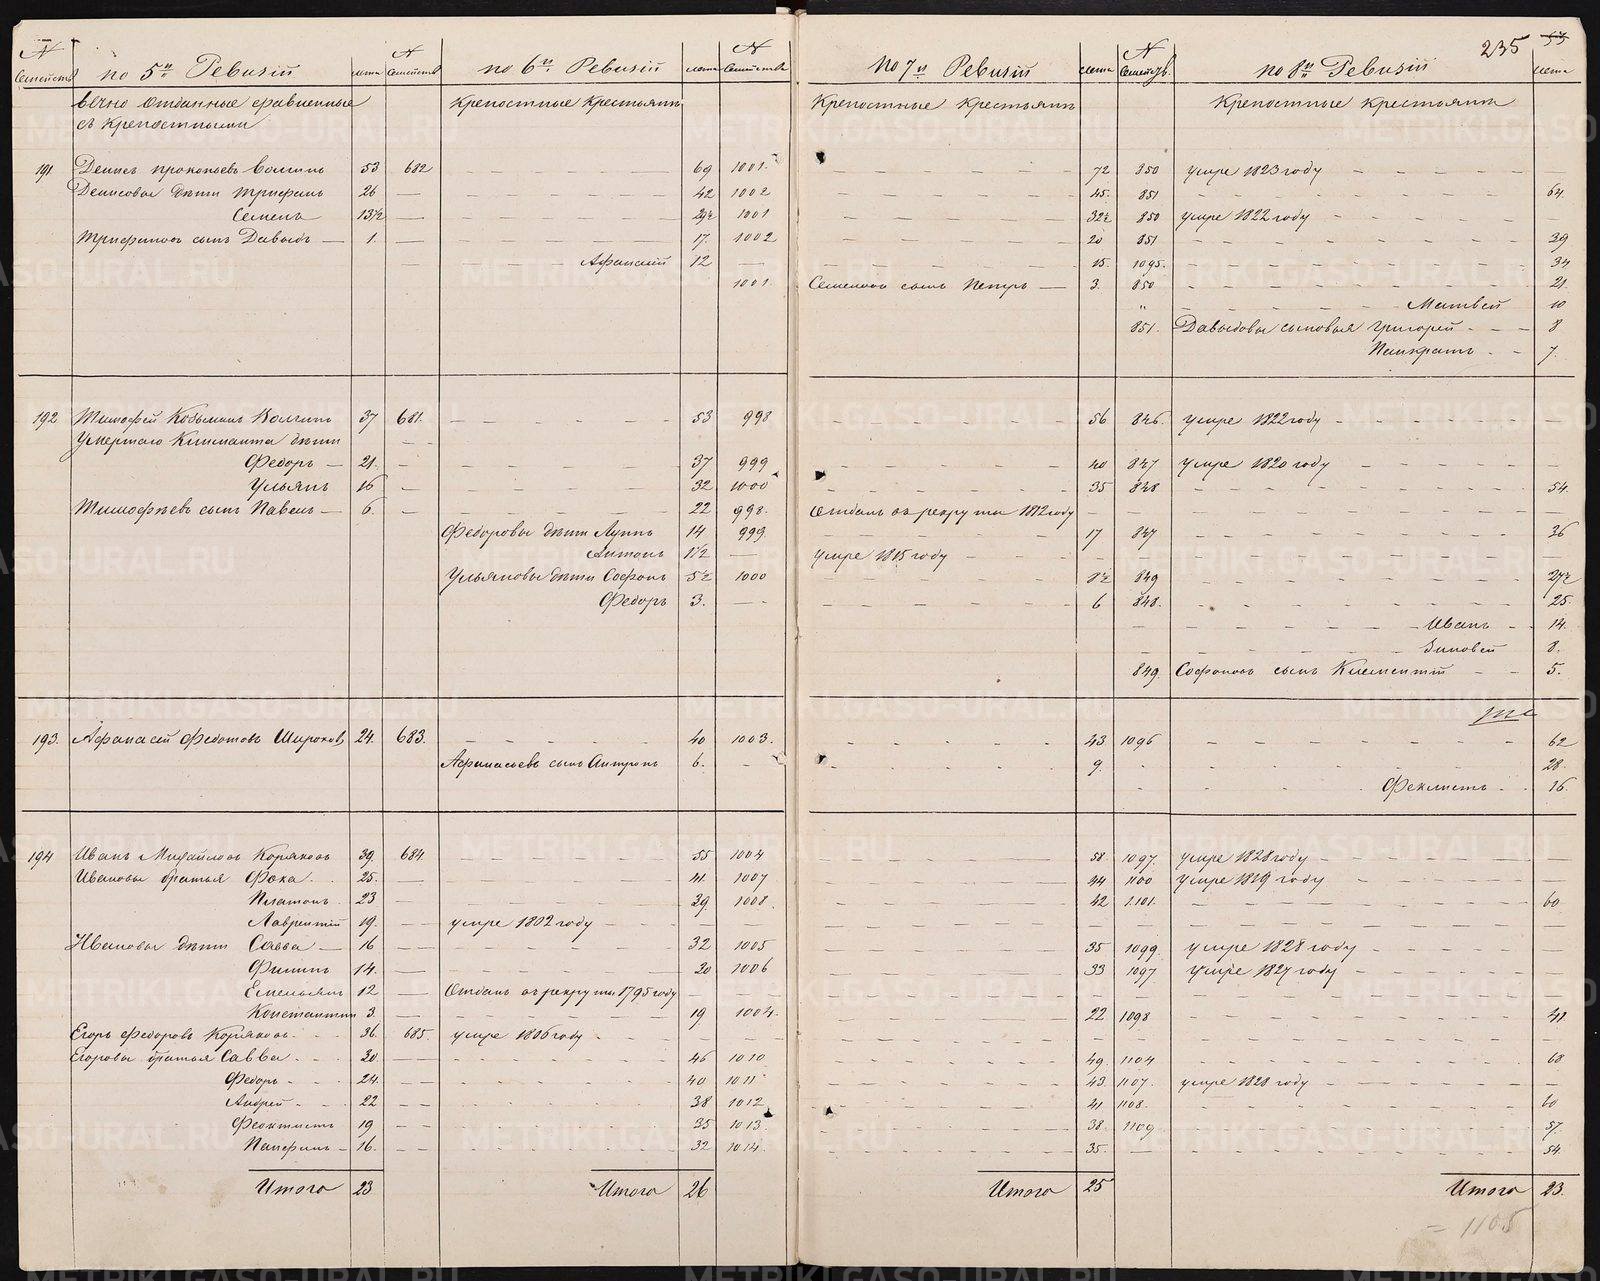 N Семейств по 5й Ревизiи лета N Семейств по 6й Ревизiи лета N Семейств по 7й Ревизiи лета N Семейств. по 8й Ревизiи лета 235 53
вечно отданные сравненные Крепостные Крестьянъ Крепостные крестьянъ Крепостные крестьянъ
съ крепостными
191 Денисъ прокопьевъ Волгинъ 53 682 69 1001 72 850 умре 1823 году
Денисовы дѣти Трифанъ 26 42 1002 45 851 64
Семенъ 13½ 29½ 1001 32½ 850 умре 1822 году
Трифановъ сынъ Давыдъ 1. 17. 1002 20 851 39
Афанасiй 12 15. 1095. 34
1001 Семеновъ сынъ Петръ 3. 850 21.
" Матвей 10
851. Давыдовы сыновья Григорей 8
Панкратъ 7.
192 Тимофей Козьминъ Волгинъ 37 681. 53 998 56 846. умре 1822 году
Умершаго Климанта дѣти
Федоръ 21. 37 999 40 847 умре 1820 году
Ульянъ 16 32 1000 35 848 54.
Тимофѣевъ сынъ Павелъ 6. 22 998. Отданъ въ рекруты 1812 году
Федоровы дѣти Лупъ 14 999. 17 847 36
Антонъ 1½ умре 1815 году
Ульяновы дѣти Софонъ 5½ 1000 8½ 849 27½
Федоръ 3. 6 848. 25.
Иванъ 14.
Зиновей 8.
849. Софоновъ сынъ Клементiй 5.
193. Афанасей Федотовъ Широковъ 24. 683. 40 1003. 43 1096 62
Афанасьевъ сынъ Антропъ 6. 9. 28.
Феклистъ 16.
194 Иванъ Михайловъ Коряковъ 39. 684. 55 1004 58. 1097. умре 1828 году
Ивановы братья Фока 25. 41. 1007 44 1100 умре 1819 году
Платонъ 23 39. 1008. 42 1101. 60
Лаврентiй 19. умре 1802 году
Ивановы дѣти Савва 16 32 1005 35 1099 умре 1828 году
Филипъ 14. 30 1006 33 1097 умре 1827 году
Емельянъ 12 Отданъ въ рекруты 1795 году
Константинъ 3. 19 1004. 22 1098 41.
Егоръ Федоровъ Коряковъ 36. 685. умре 1806 году
Егоровы братья Савва 30 46 1010 49. 1104 68
Федоръ 24. 40 1011 43 1107. умре 1828 году
Андрей 22 38 1012 41 1108. 60
Феоктистъ 19 35 1013 38. 1109. 57.
Панфилъ 16. 32 1014. 35. 54.
Итого 23 Итого 26 Итого 25 Итого 23.
= 1105
METRIKI.GASO-URAL.RU